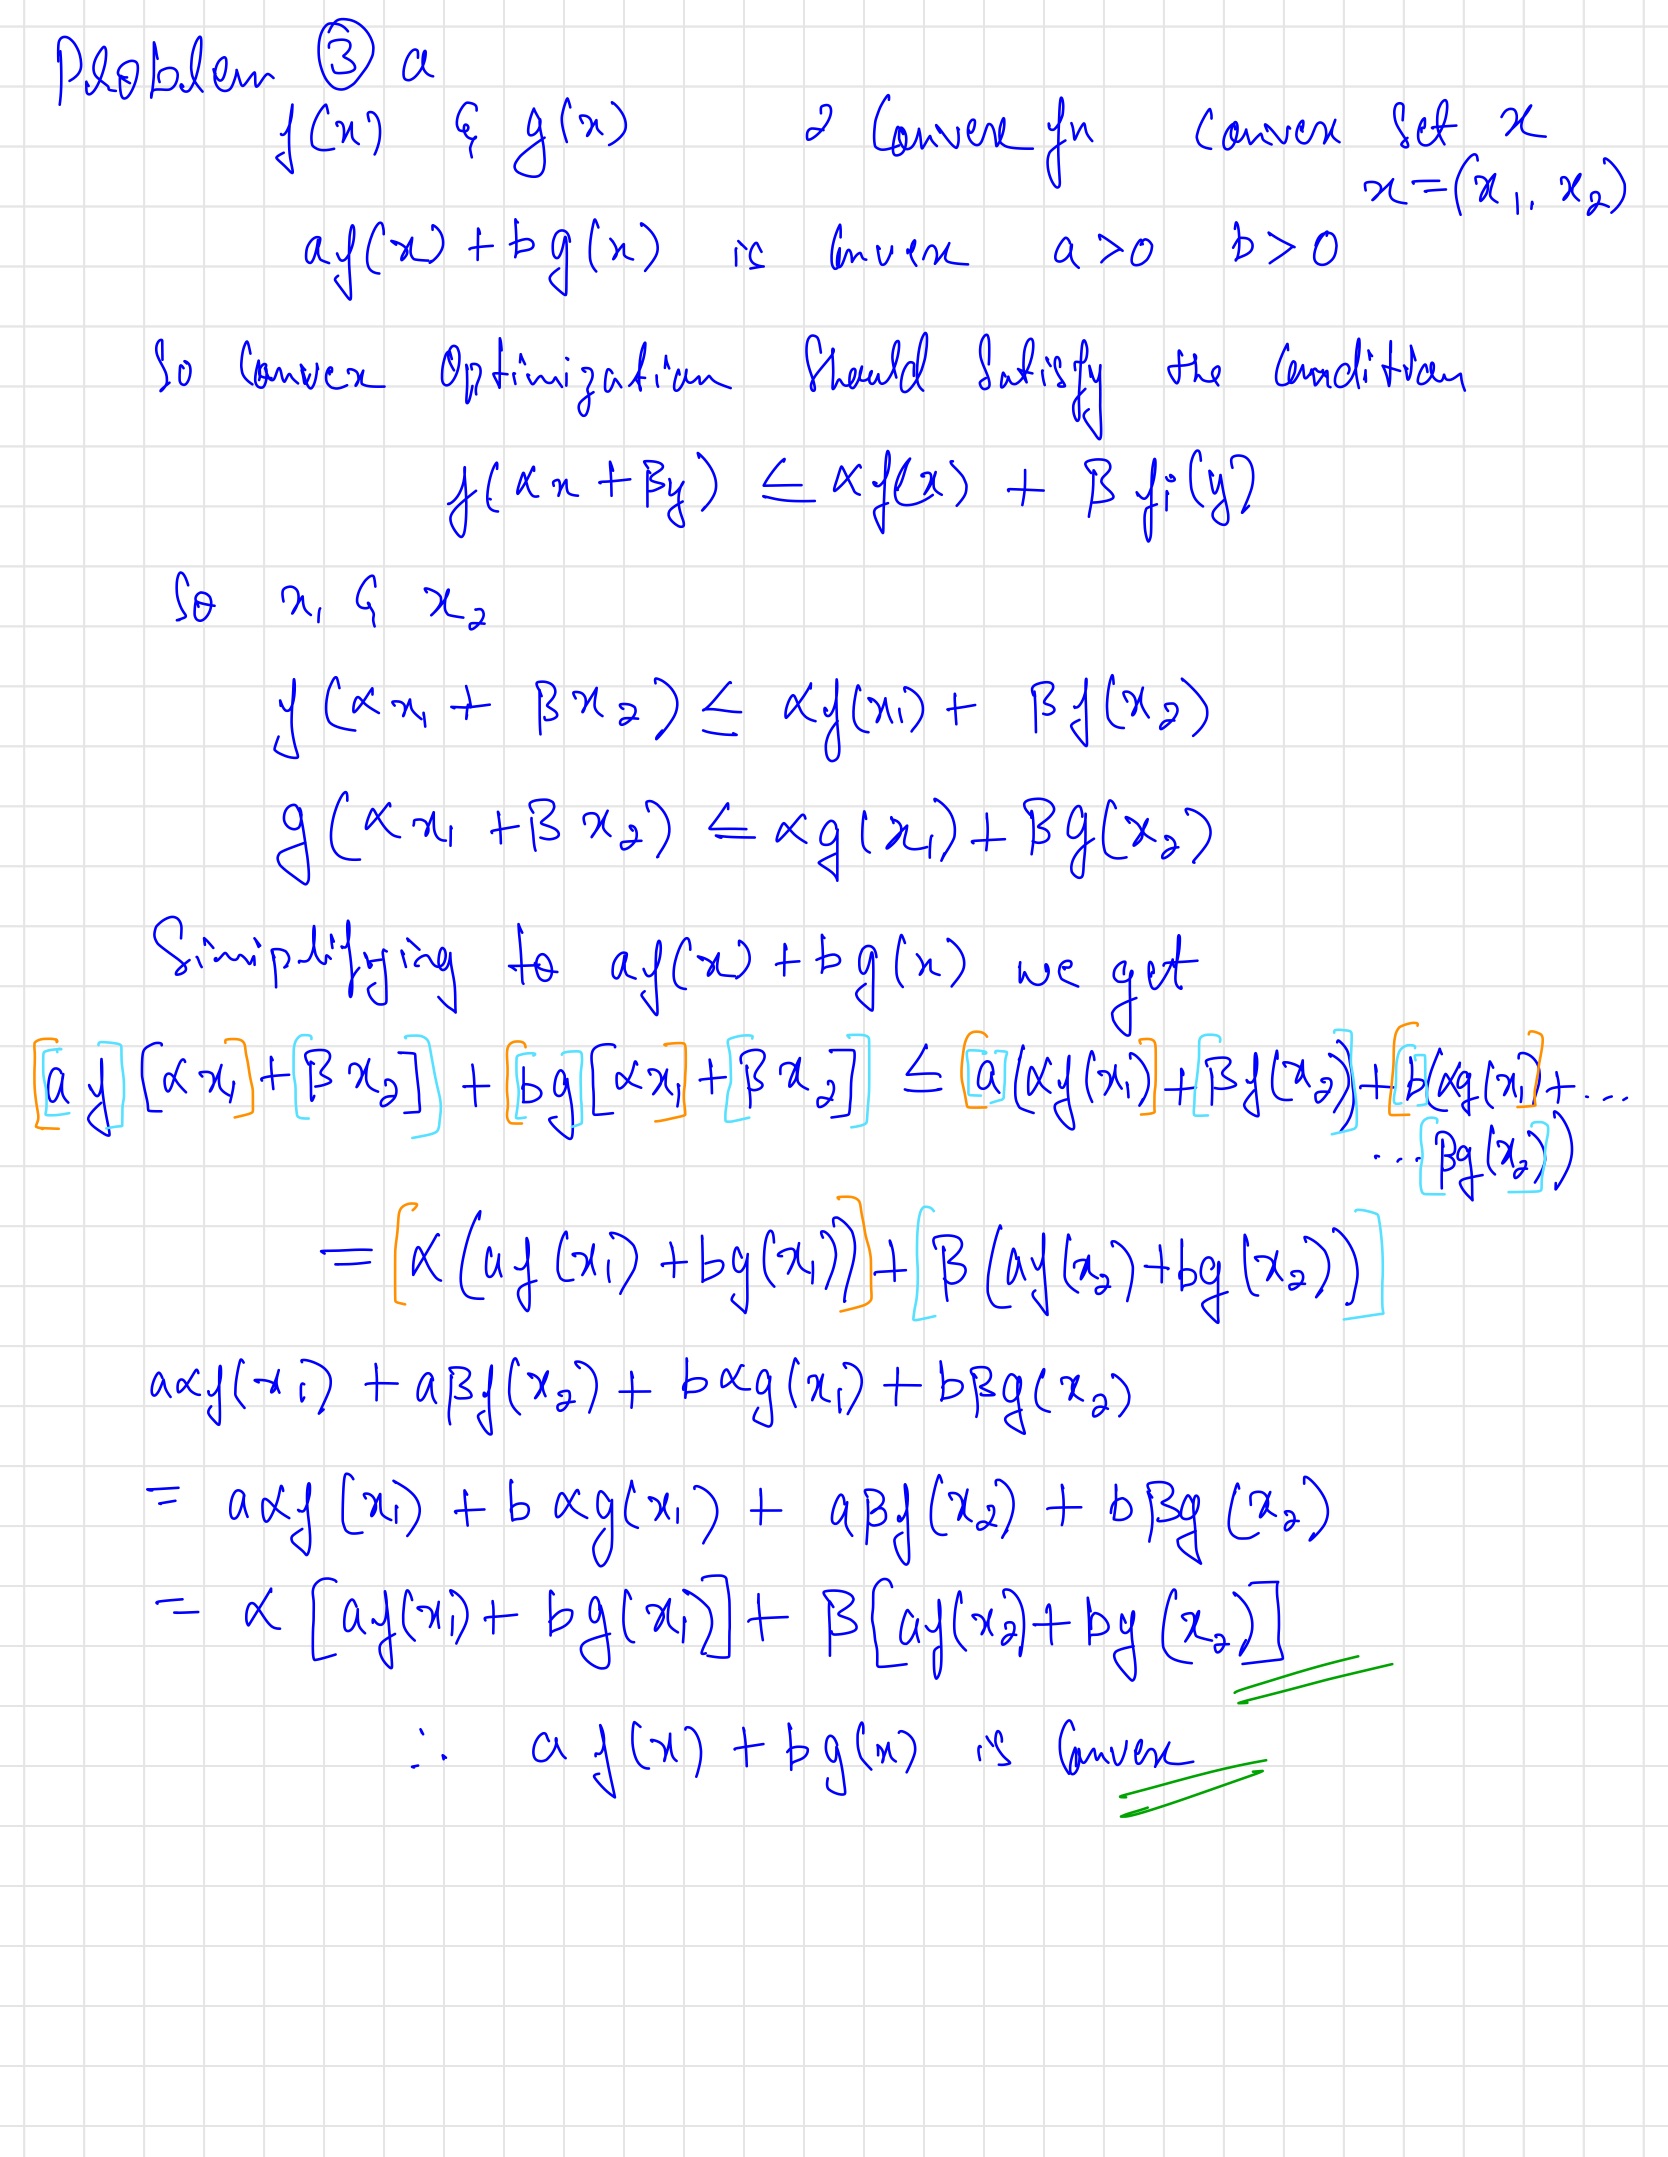 Problem ③ a
f(x) & g(x) 2 Convex fn Convex Set x
x=(x₁, x₂)
af(x) + bg(x) is Convex a>0 b>0
So Convex Optimization Should Satisfy the Condition
f(αx + βy) ≤ αf(x) + β fᵢ(y)
So x₁ & x₂
f(αx₁ + βx₂) ≤ αf(x₁) + βf(x₂)
g(αx₁ + βx₂) ≤ αg(x₁) + βg(x₂)
Simplifying to af(x) + bg(x) we get
[[a f] [αx₁] + [βx₂]] + [[bg] [αx₁] + [βx₂]] ≤ [[a] (αf(x₁)] + [βf(x₂))] + [[b] (αg(x₁)] + ...
... [βg(x₂)])
= [α(af(x₁) + bg(x₁))] + [β(af(x₂) + bg(x₂))]
aαf(x₁) + aβf(x₂) + bαg(x₁) + bβg(x₂)
= aαf(x₁) + bαg(x₁) + aβf(x₂) + bβg(x₂)
= α[af(x₁) + bg(x₁)] + β[af(x₂) + bg(x₂)]
∴ af(x) + bg(x) is Convex